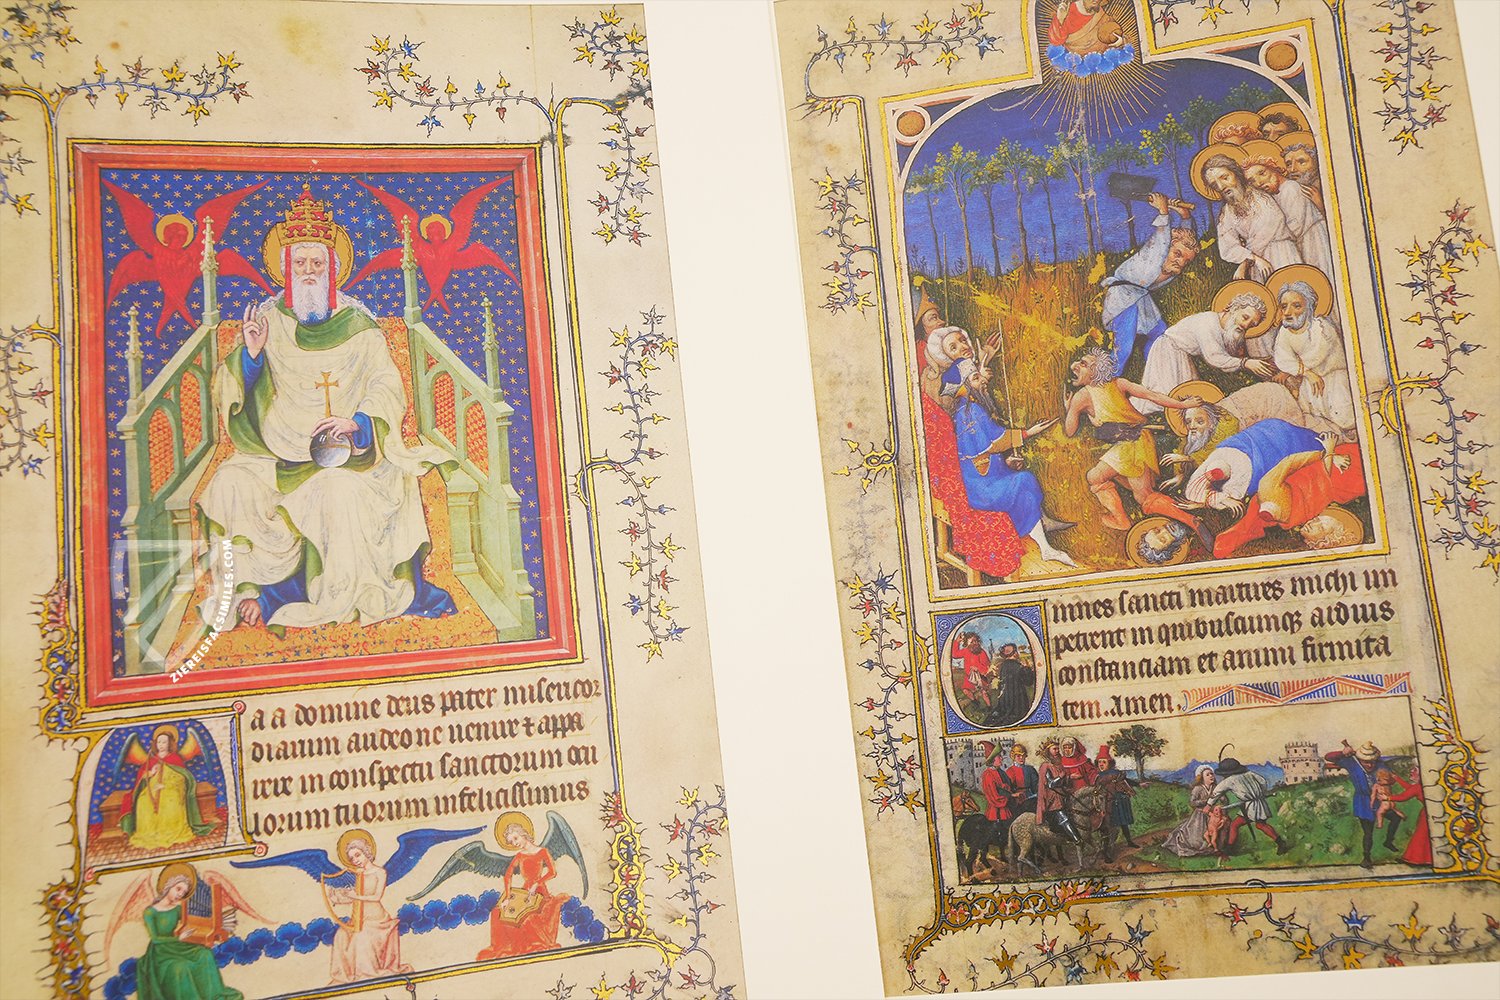 a a domine deus pater misericor
diarum audeo ne uenire & appa
rere in conspectu sanctorum ocu
lorum tuorum infelicissimus
mnes sancti martires michi im
petrent in quibuscunq; arduis
constanciam et animi firmita
tem. Amen.
ZIEREISFACSIMILES.COM